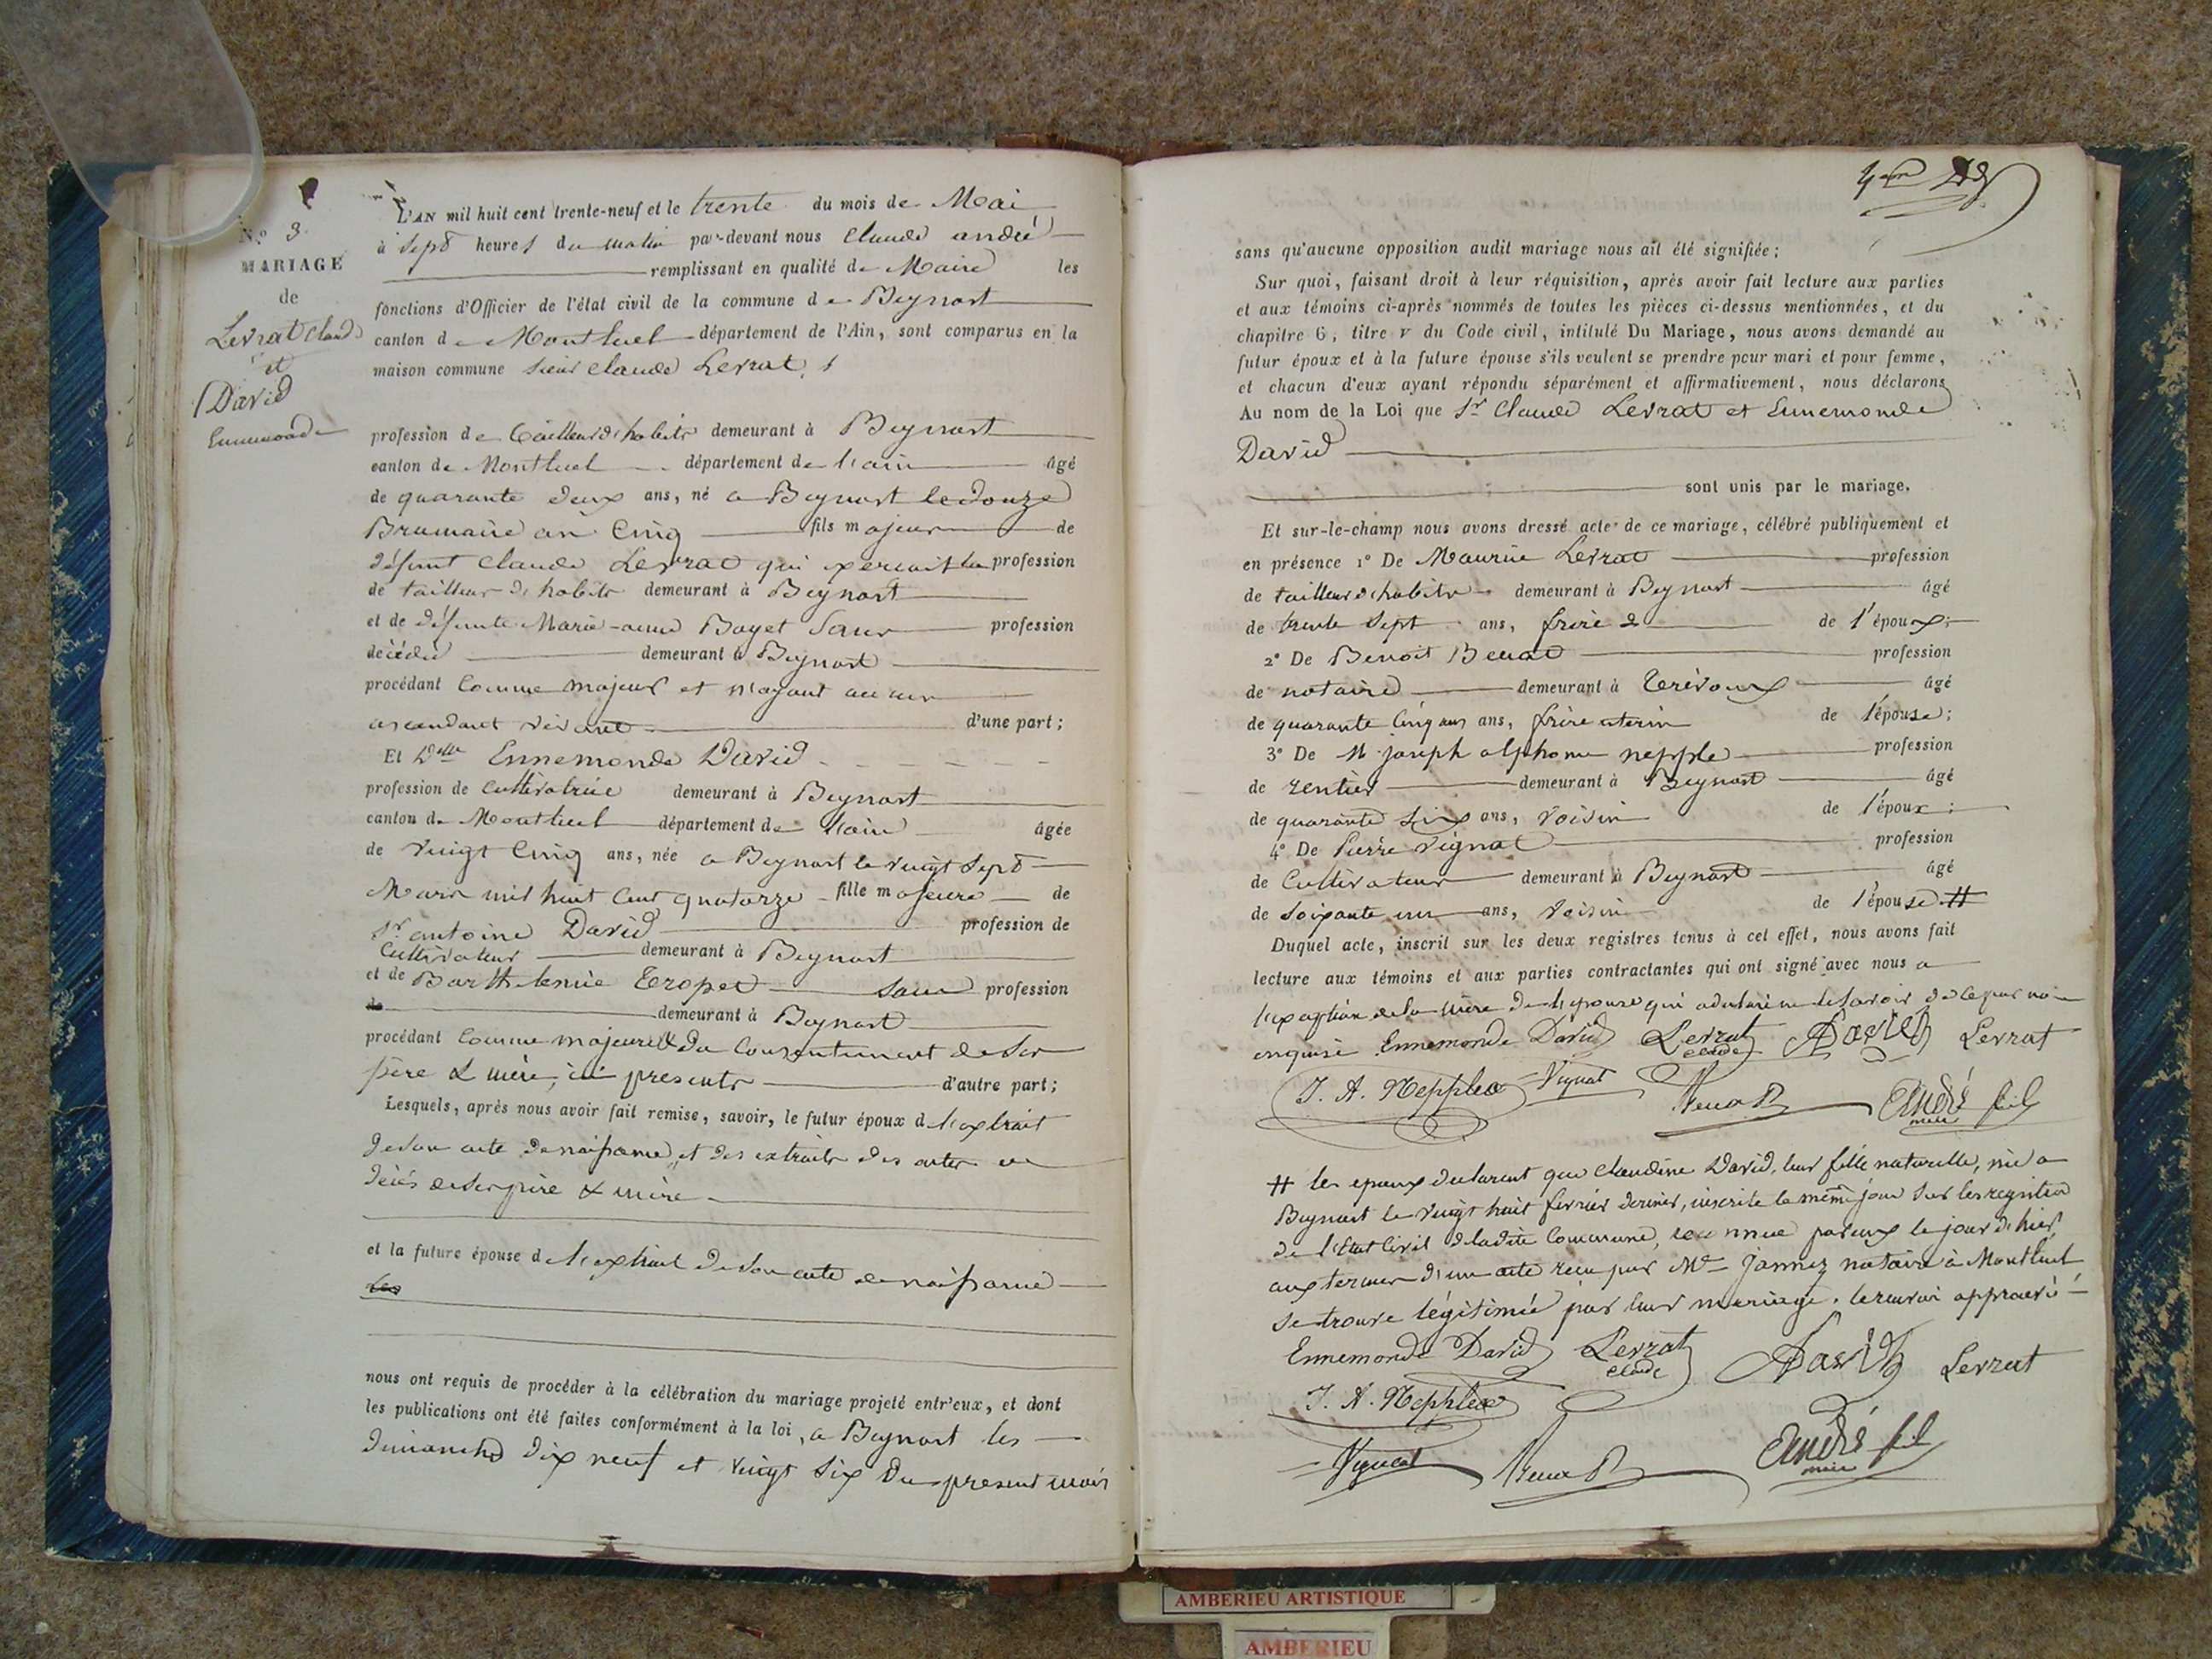 N.o 3.
MARIAGE
de
Levrat Claude
et
David
Ennemonde
L'AN mil huit cent trente-neuf et le trente du mois de Mai
à sept heures du matin par-devant nous Claude andré
remplissant en qualité de Maire les
fonctions d'Officier de l'état civil de la commune de Beynost
canton de Montluel département de l'Ain, sont comparus en la
maison commune sieur Claude Levrat
profession de tailleur d'habits demeurant à Beynost
canton de Montluel département de l'ain âgé
de quarante deux ans, né a Beynost le douze
Brumaire an Cinq fils majeur de
défunt Claude Levrat qui exercait la profession
de tailleur d'habits demeurant à Beynost
et de défunte Marie-anne Bayet sans profession
décédée demeurant à Beynost
procédant Comme majeur et n'ayant aucun
ascendant vivant d'une part;
Et Delle Ennemonde David
profession de Cultivatrice demeurant à Beynost
canton de Montluel département de l'ain âgée
de vingt Cinq ans, née a Beynost le vingt sept
Mars mil huit Cent quatorze fille majeure de
Sr antoine David profession de
Cultivateur demeurant à Beynost
et de Barthelemie Tropet sans profession
demeurant à Beynost
procédant Comme majeure & du Consentement de ses
père & mère, ici presents d'autre part;
Lesquels, après nous avoir fait remise, savoir, le futur époux de l'extrait
de son acte de naissance, et des extraits des actes de
décés de ses père & mère
et la future épouse de l'extrait de son acte de naissance
nous ont requis de procéder à la célébration du mariage projeté entr'eux, et dont
les publications ont été faites conformément à la loi, a Beynost les
dimanches dix neuf et vingt six du present mois
sans qu'aucune opposition audit mariage nous ait été signifiée;
Sur quoi, faisant droit à leur réquisition, après avoir fait lecture aux parties
et aux témoins ci-après nommés de toutes les pièces ci-dessus mentionnées, et du
chapitre 6, titre v du Code civil, intitulé Du Mariage, nous avons demandé au
futur époux et à la future épouse s'ils veulent se prendre pour mari et pour femme,
et chacun d'eux ayant répondu séparément et affirmativement, nous déclarons
Au nom de la Loi que Sr Claude Levrat et Ennemonde
David
sont unis par le mariage.
Et sur-le-champ nous avons dressé acte de ce mariage, célébré publiquement et
en présence 1° De Maurice Levrat profession
de tailleur d'habits demeurant à Beynost âgé
de trente sept ans, frère de l'époux;
2° De Benoit profession
de notaire demeurant à Trévoux âgé
de quarante Cinq ans ans, frère uterin de l'épouse;
3° De M joseph alphonse nepple profession
de rentier demeurant à Beynost âgé
de quarante six ans, voisin de l'époux;
4° De Pierre Vignat profession
de Cultivateur demeurant à Beynost âgé
de soixante un ans, voisin de l'épouse #
Duquel acte, inscrit sur les deux registres tenus à cet effet, nous avons fait
lecture aux témoins et aux parties contractantes qui ont signé avec nous a
l'exception de la mère de l'epouse qui a declaré ne le savoir de ce par nous
enquise Ennemonde David Levrat Claude David Levrat
J. A. Nepple Vignat André fils
maire
# les epoux declarent que Claudine David, leur fille naturelle, née a
Beynost le vingt huit fevrier dernier, inscrite le même jour sur les registres
de l'Etat Civil de ladite Commune, reconnue par eux le jour d'hier
aux termes d'un acte reçu par Me Jannez notaire à Montluel
se trouve légitimée par leur mariage. le renvoi approuvé
Ennemonde David Levrat Claude David Levrat
J. A. Nepple
Vignat André fils
maire
AMBERIEU ARTISTIQUE
AMBERIEU